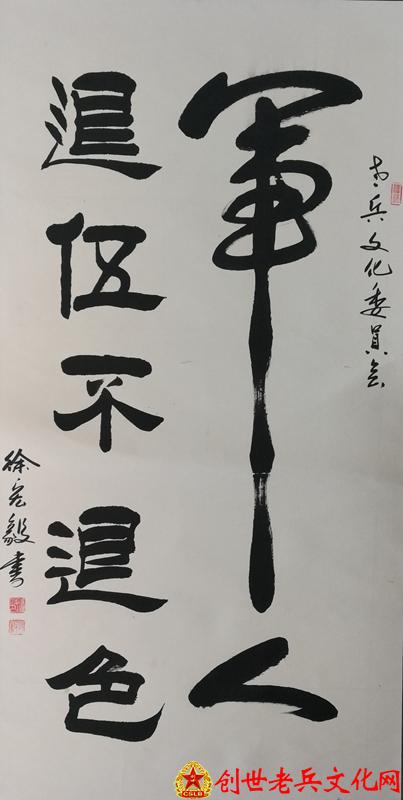 老兵文化委員会
軍人
退伍不退色
徐宏毅書
创世老兵文化网
CSLB